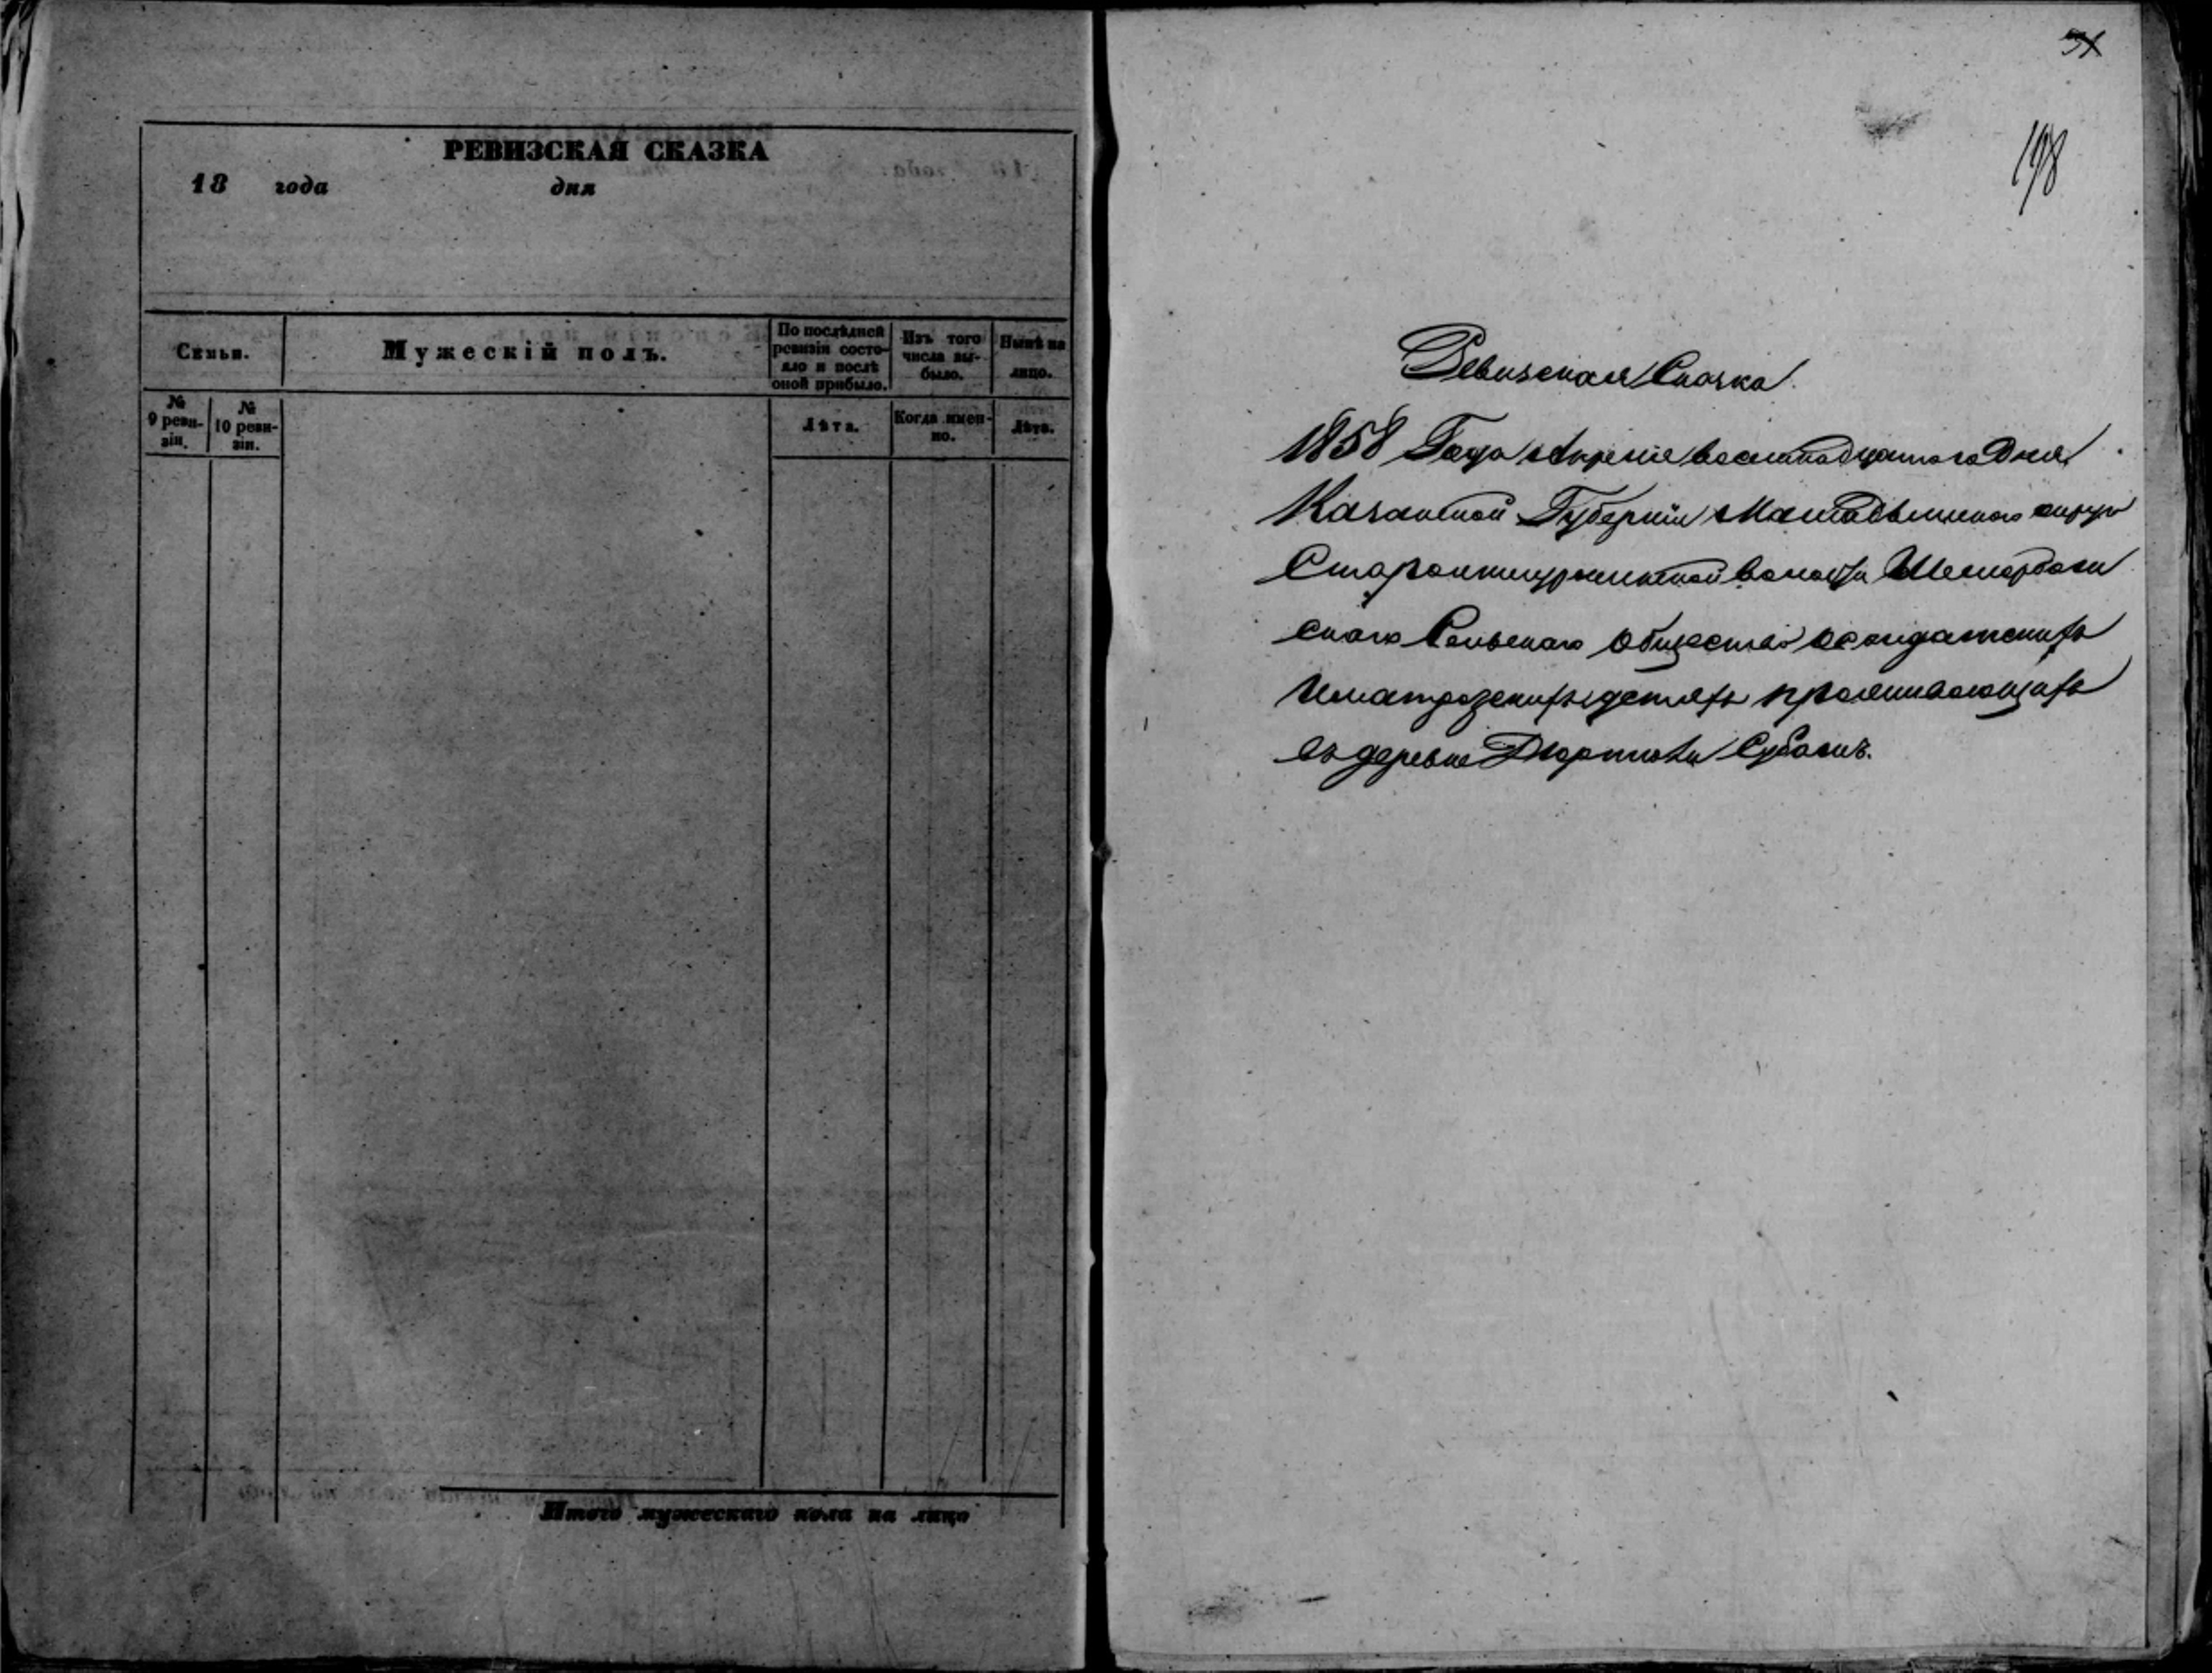 РЕВИЗСКАЯ СКАЗКА
18 года дня
Семьи.
Мужескій полъ.
По послѣдней ревизіи состо-
яло и послѣ оной прибыло.
Изъ того числа вы-
было.
Нынѣ на лицо.
№ 9 реви-
зіи.
№ 10 реви-
зіи.
Лѣта.
Когда имен-
но.
Лѣта.
Итого мужескаго пола на лицо
51
198
Ревизская Сказка
1858 Года Апреля восемнадцатого Дня
Казанской Губерніи Мамадышскаго округа
Староятчурминской волости Шемордан
скаго Сельскаго общества о солдатскихъ
и матрозскихъ детяхъ проживающихъ
въ деревне Дюртили Субашъ.